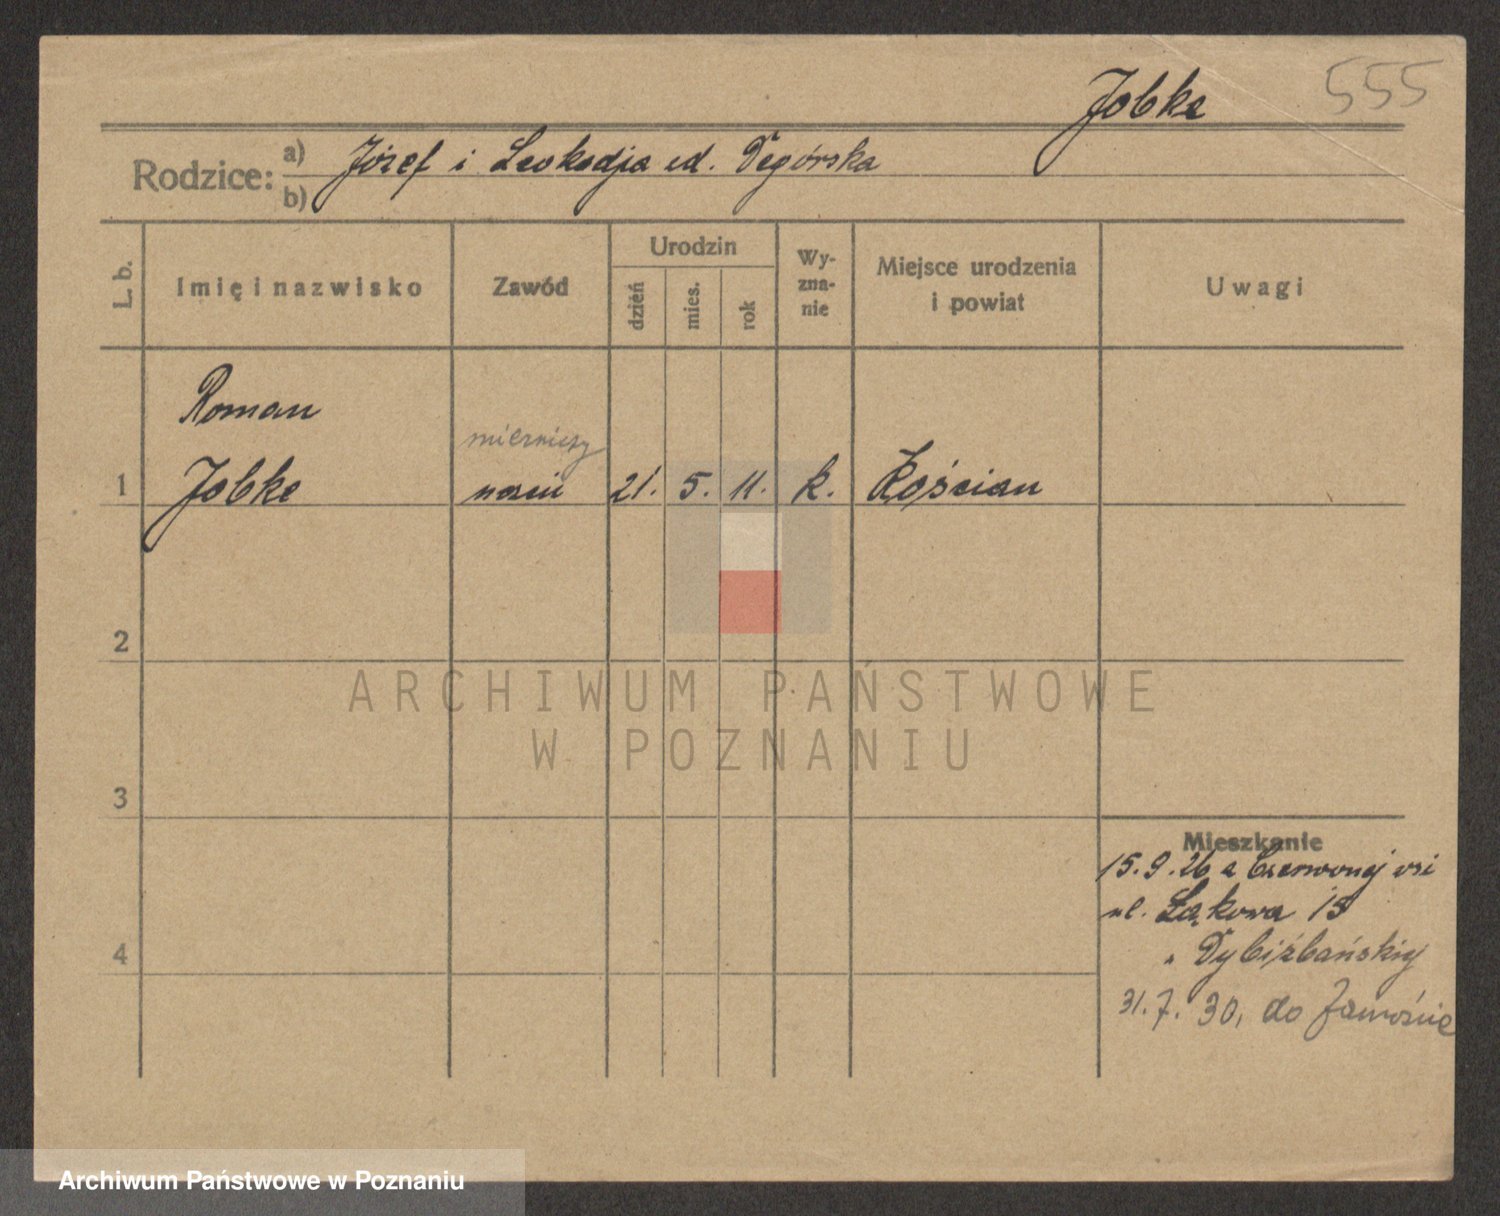 555
Jobke
Rodzice: a) Józef i Leokadja ed. Degórska
b)
L. b. Imię i nazwisko Zawód Urodzin dzień mies. rok Wyznanie Miejsce urodzenia i powiat Uwagi
Roman
mierniczy
1 Jobke uczeń 21. 5. 11. k. Kościan
2
ARCHIWUM PAŃSTWOWE
W POZNANIU
3
Mieszkanie
15.9.26 z Czerwonej wsi
4 ul. Łąkowa 15
" Dybizbański
31.7.30, do
Archiwum Państwowe w Poznaniu